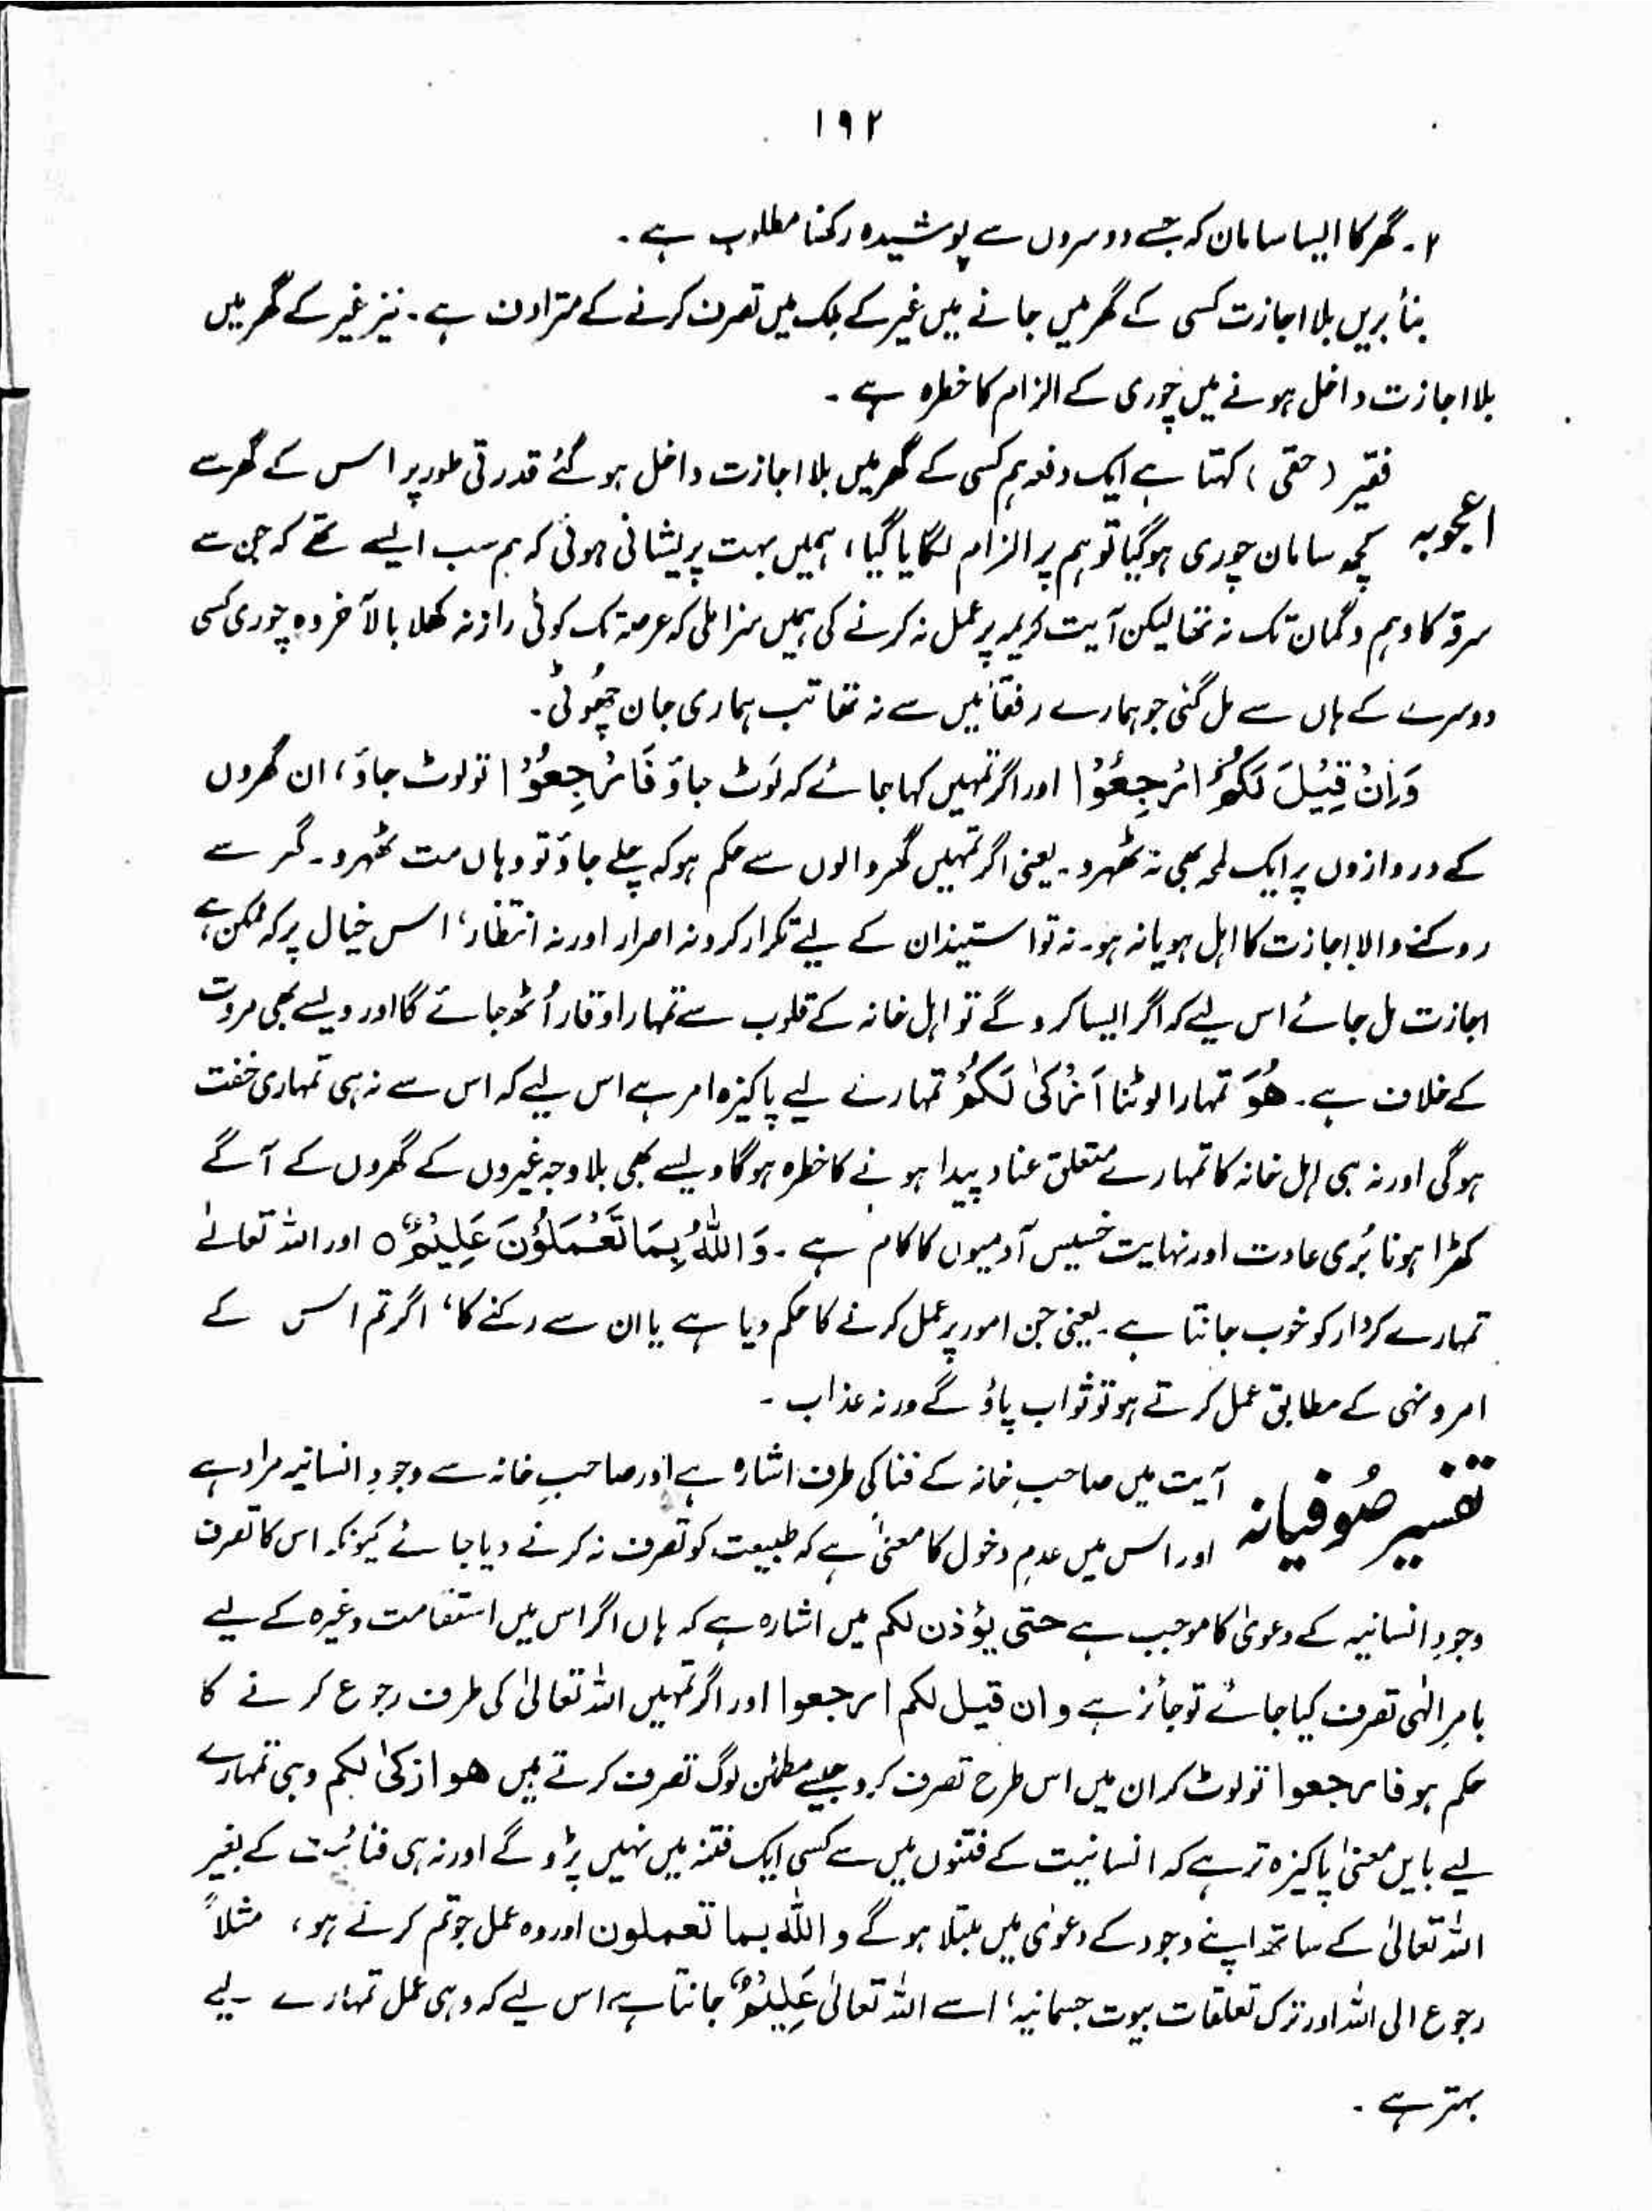 ۱۹۲
۲۔ گھر کا ایسا سامان کہ جسے دوسروں سے پوشیدہ رکھنا مطلوب ہے۔
بنأ بریں بلا اجازت کسی کے گھر میں جانے میں غیر کے ملک میں تصرف کرنے کے مترادف ہے۔ نیز غیر کے گھر میں
بلا اجازت داخل ہونے میں چوری کے الزام کا خطرہ ہے۔
فقیر (حقی) کہتا ہے ایک دفعہ ہم کسی کے گھر میں بلا اجازت داخل ہو گئے قدرتی طور پر اس کے گھر سے
اعجوبہ کچھ سامان چوری ہو گیا تو ہم پر الزام لگایا گیا، ہمیں بہت پریشانی ہوئی کہ ہم سب ایسے تھے کہ جن سے
سرقہ کا وہم و گمان تک نہ تھا لیکن آیت کریمہ پر عمل نہ کرنے کی ہمیں سزا ملی کہ عرصہ تک کوئی راز نہ کھلا بالآخر وہ چوری کسی
دوسرے کے ہاں سے مل گئی جو ہمارے رفقأ میں سے نہ تھا تب ہماری جان چھوٹی۔
وَاِنْ قِیْلَ لَکُمُ ارْجِعُوْا اور اگر تمہیں کہا جائے کہ لَوٹ جاؤ فَارْجِعُوْا تو لوٹ جاؤ، ان گھروں
کے دروازوں پر ایک لمحہ بھی نہ ٹھہرو۔ یعنی اگر تمہیں گھر والوں سے حکم ہو کہ چلے جاؤ تو وہاں مت ٹھہرو۔ گھر سے
روکنے والا اجازت کا اہل ہو یا نہ ہو۔ نہ تو استیذان کے لیے تکرار کرو نہ اصرار اور نہ انتظار، اس خیال پر کہ ممکن ہے
اجازت مل جائے اس لیے کہ اگر ایسا کرو گے تو اہل خانہ کے قلوب سے تمہارا وقار اُٹھ جائے گا اور ویسے بھی مروت
کے خلاف ہے۔ ھُوَ تمہارا لوٹنا اَزْکٰی لَکُمْ تمہارے لیے پاکیزہ امر ہے اس لیے کہ اس سے نہ ہی تمہاری خفت
ہوگی اور نہ ہی اہل خانہ کا تمہارے متعلق عناد پیدا ہونے کا خطرہ ہوگا ویسے بھی بلا وجہ غیروں کے گھروں کے آگے
کھڑا ہونا بُری عادت اور نہایت خسیس آدمیوں کا کام ہے۔ وَاللّٰہُ بِمَا تَعْمَلُوْنَ عَلِیْمٌ ○ اور اللہ تعالےٰ
تمہارے کردار کو خوب جانتا ہے۔ یعنی جن امور پر عمل کرنے کا حکم دیا ہے یا ان سے رکنے کا، اگر تم اس کے
امر و نہی کے مطابق عمل کرتے ہو تو ثواب پاؤ گے ورنہ عذاب۔
آیت میں صاحبِ خانہ کے فنا کی طرف اشارہ ہے اور صاحبِ خانہ سے وجودِ انسانیہ مراد ہے
تفسیر صُوفیانہ اور اس میں عدمِ دخول کا معنیٰ ہے کہ طبیعت کو تصرف نہ کرنے دیا جائے کیونکہ اس کا تصرف
وجودِ انسانیہ کے دعویٰ کا موجب ہے حتی یؤذن لکم میں اشارہ ہے کہ ہاں اگر اس میں استقامت وغیرہ کے لیے
بامرِ الٰہی تصرف کیا جائے تو جائز ہے وان قیل لکم ارجعوا اور اگر تمہیں اللہ تعالیٰ کی طرف رجوع کرنے کا
حکم ہو فارجعوا تو لوٹ کر ان میں اس طرح تصرف کرو جیسے مطمئن لوگ تصرف کرتے ہیں ھو ازکیٰ لکم وہی تمہارے
لیے بایں معنیٰ پاکیزہ تر ہے کہ انسانیت کے فتنوں میں سے کسی ایک فتنہ میں نہیں پڑو گے اور نہ ہی فنائیت کے بغیر
اللہ تعالیٰ کے ساتھ اپنے وجود کے دعویٰ میں مبتلا ہو گے واللّٰہ بما تعملون اور وہ عمل جو تم کرتے ہو، مثلاً
رجوع الی اللہ اور ترک تعلقات بیوت جسمانیہ، اسے اللہ تعالیٰ عَلِیْمٌ جانتا ہے اس لیے کہ وہی عمل تمہارے لیے
بہتر ہے۔